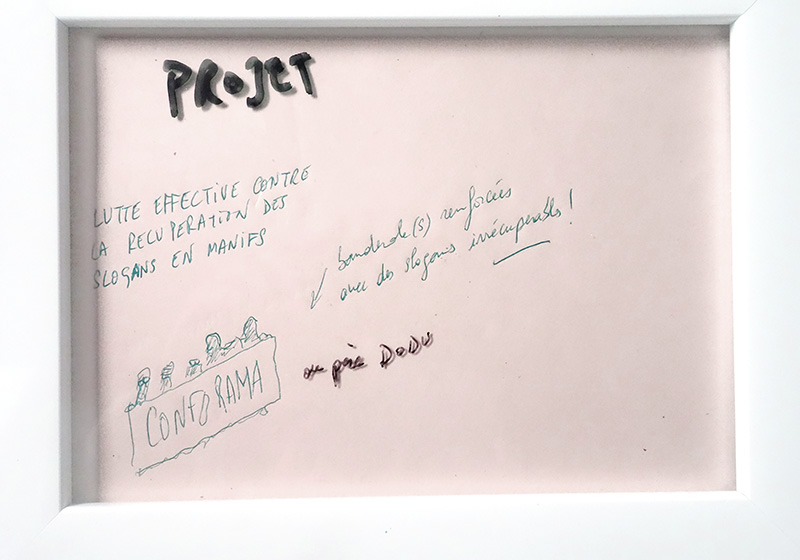 PROJET
LUTTE EFFECTIVE CONTRE
LA RECUPERATION DES
SLOGANS EN MANIFS
banderole(s) renforcées
avec des slogans irrécupérables !
CONFORAMA
ou père DODU